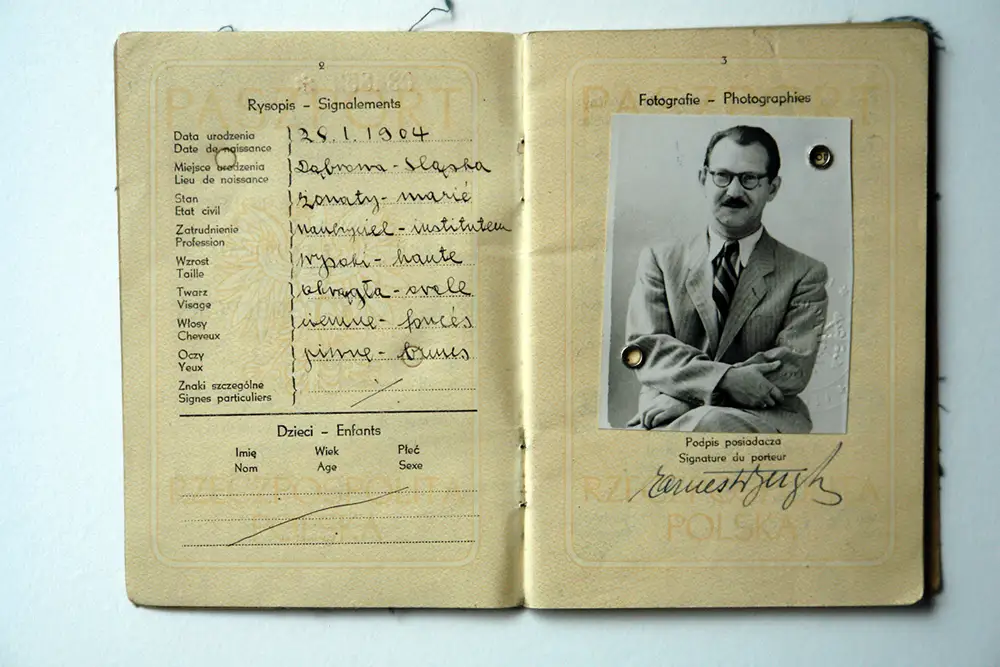 2
PASZPORT
Rysopis – Signalements
Data urodzenia
Date de naissance
28.1.1904
Miejsce urodzenia
Lieu de naissance
Dąbrowa - Śląska
Stan
Etat civil
żonaty - marié
Zatrudnienie
Profession
nauczyciel - instituteur
Wzrost
Taille
wysoki - haute
Twarz
Visage
okrągła - ovale
Włosy
Cheveux
ciemne - foncés
Oczy
Yeux
piwne - brunes
Znaki szczególne
Signes particuliers
Dzieci – Enfants
Imię Wiek Płeć
Nom Age Sexe
RZECZPOSPOLITA
POLSKA
3
PASZPORT
Fotografie – Photographies
Podpis posiadacza
Signature du porteur
RZECZPOSPOLITA
POLSKA